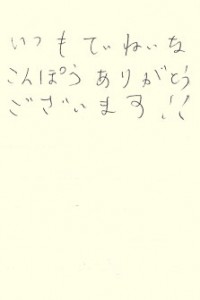 いつもていねいな
こんぽうありがとう
ございます!!